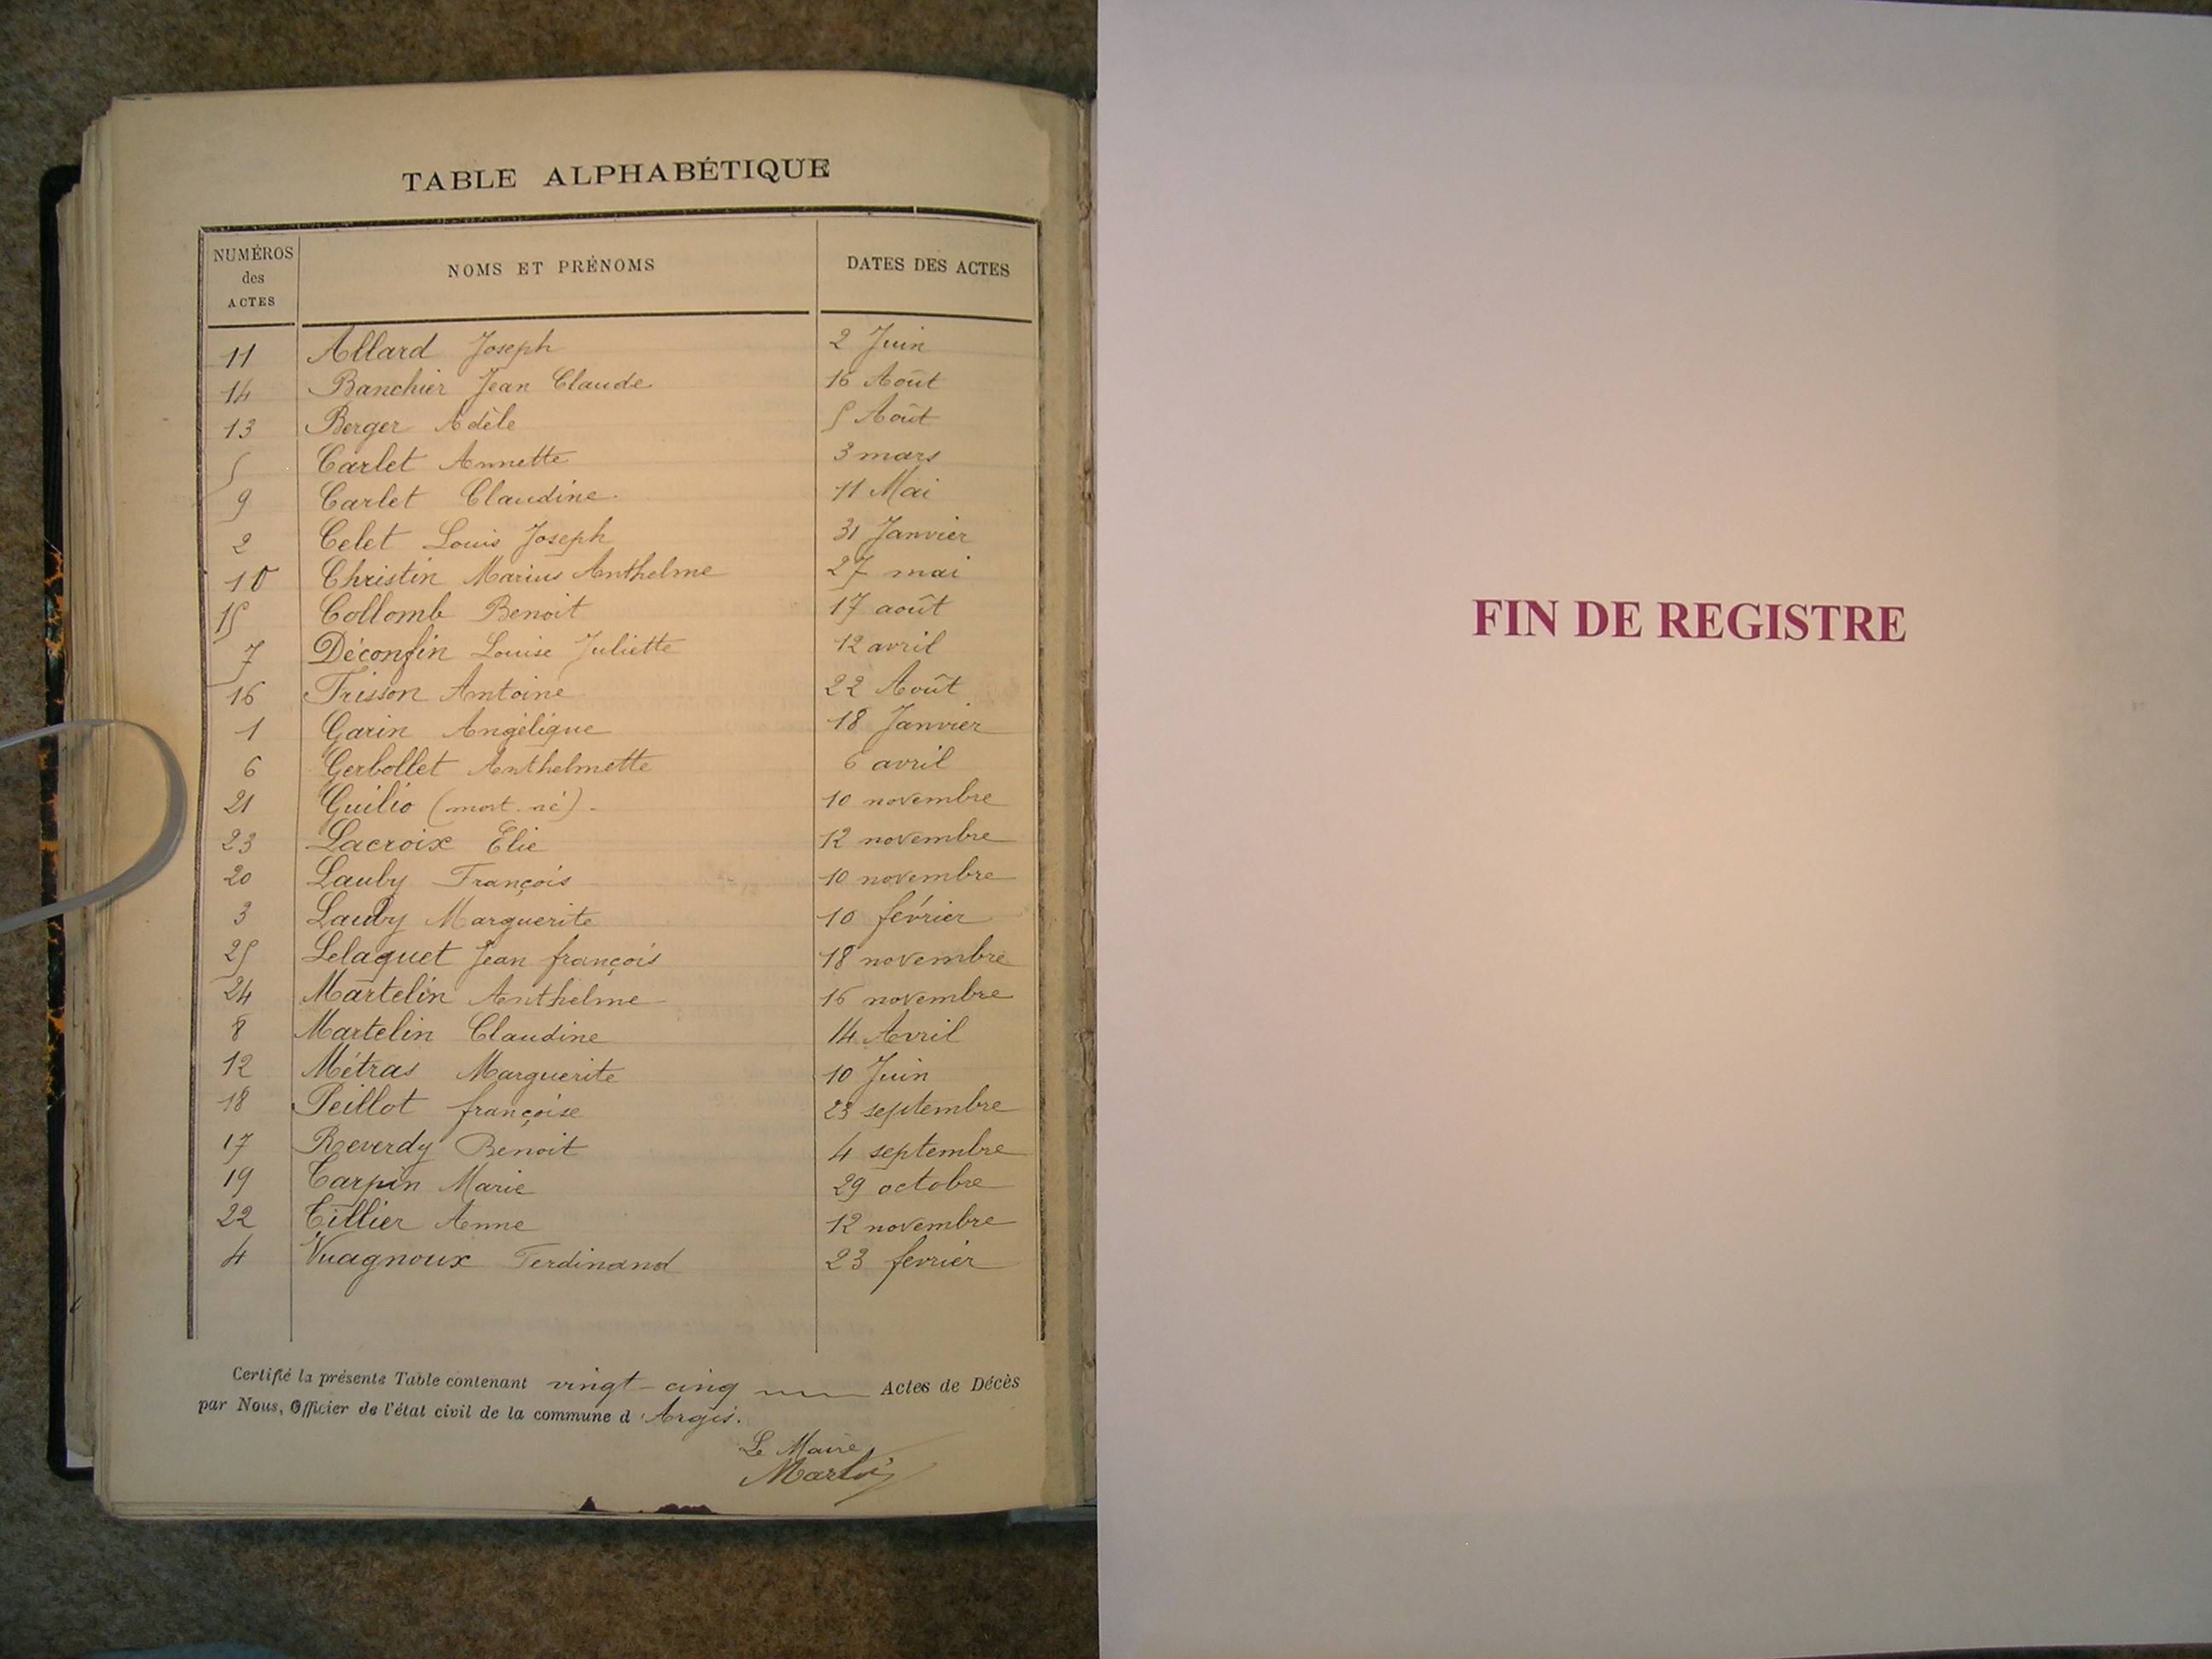 TABLE ALPHABÉTIQUE
NUMÉROS des ACTES NOMS ET PRÉNOMS DATES DES ACTES
11 Allard Joseph 2 Juin
14 Banchier Jean Claude 16 Août
13 Berger Adèle 5 Août
5 Carlet Annette 3 mars
9 Carlet Claudine 11 Mai
2 Celet Louis Joseph 31 Janvier
10 Christin Marius Anthelme 27 mai
15 Collomb Benoit 17 août
7 Déconfin Louise Juliette 12 avril
16 Frisson Antoine 22 Août
1 Garin Angélique 18 Janvier
6 Gerbollet Anthelmette 6 avril
21 Guilio (mort-né) 10 novembre
23 Lacroix Elie 12 novembre
20 Lauby François 10 novembre
3 Lauby Marguerite 10 février
25 Lelaquet Jean françois 18 novembre
24 Martelin Anthelme 16 novembre
8 Martelin Claudine 14 Avril
12 Métras Marguerite 10 Juin
18 Peillot françoise 23 septembre
17 Reverdy Benoit 4 septembre
19 Carpin Marie 29 octobre
22 Tillier Anne 12 novembre
4 Vuagnoux Ferdinand 23 fevrier
Certifié la présente Table contenant vingt-cinq Actes de Décès
par Nous, Officier de l'état civil de la commune d'Argis.
Le Maire
FIN DE REGISTRE